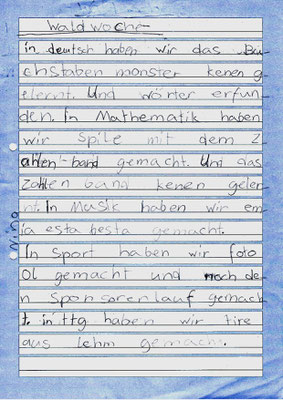 Waldwoche
in deutsch haben wir das Bu
chstaben monster kenen g
elernt. Und wörter erfun
den. In Mathematik haben
wir Spile mit dem Z
ahlen-band gemacht. Und das
Zahlen band kenen geler
nt. In Musik haben wir em
ia esta hesta gemacht.
In Sport haben wir foto
Ol gemacht und noch de
n Sponsorer lauf gemach
t. in ttg haben wir tire
aus lehm gemacht.
Nino